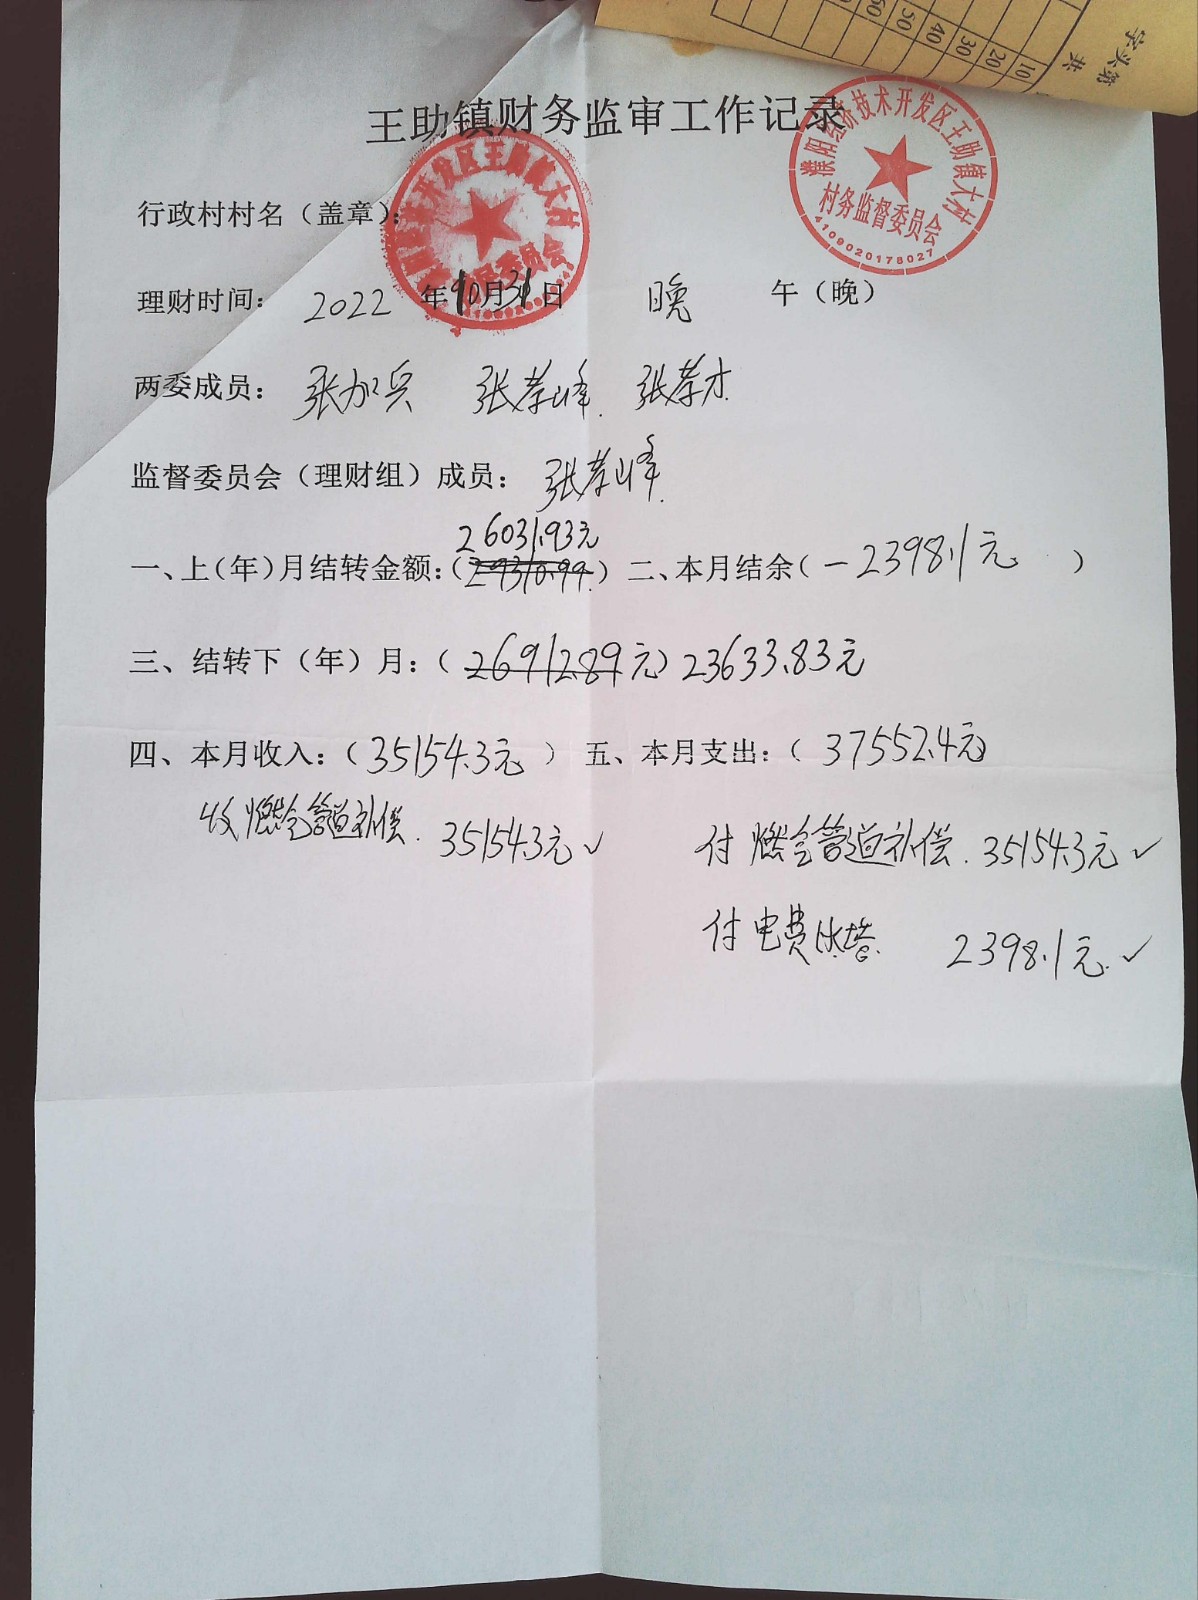 字头第
共
10 20 30 40 50 60
王助镇财务监审工作记录
濮阳经济技术开发区王助镇大村
村务监督委员会
4109020178027
开发区王助镇大村
委员会
行政村村名（盖章）：
理财时间： 2022 年10月31日 晚 午（晚）
两委成员： 张加兵 张孝峰 张孝才
监督委员会（理财组）成员： 张孝峰
26031.93元
一、上（年）月结转金额：（29310.99） 二、本月结余（-2398.1元 ）
三、结转下（年）月：（26912.89元）23633.83元
四、本月收入：（35154.3元 ） 五、本月支出：（37552.4元）
收燃气管道补偿. 35154.3元✓ 付燃气管道补偿. 35154.3元✓
付电费水塔. 2398.1元.✓